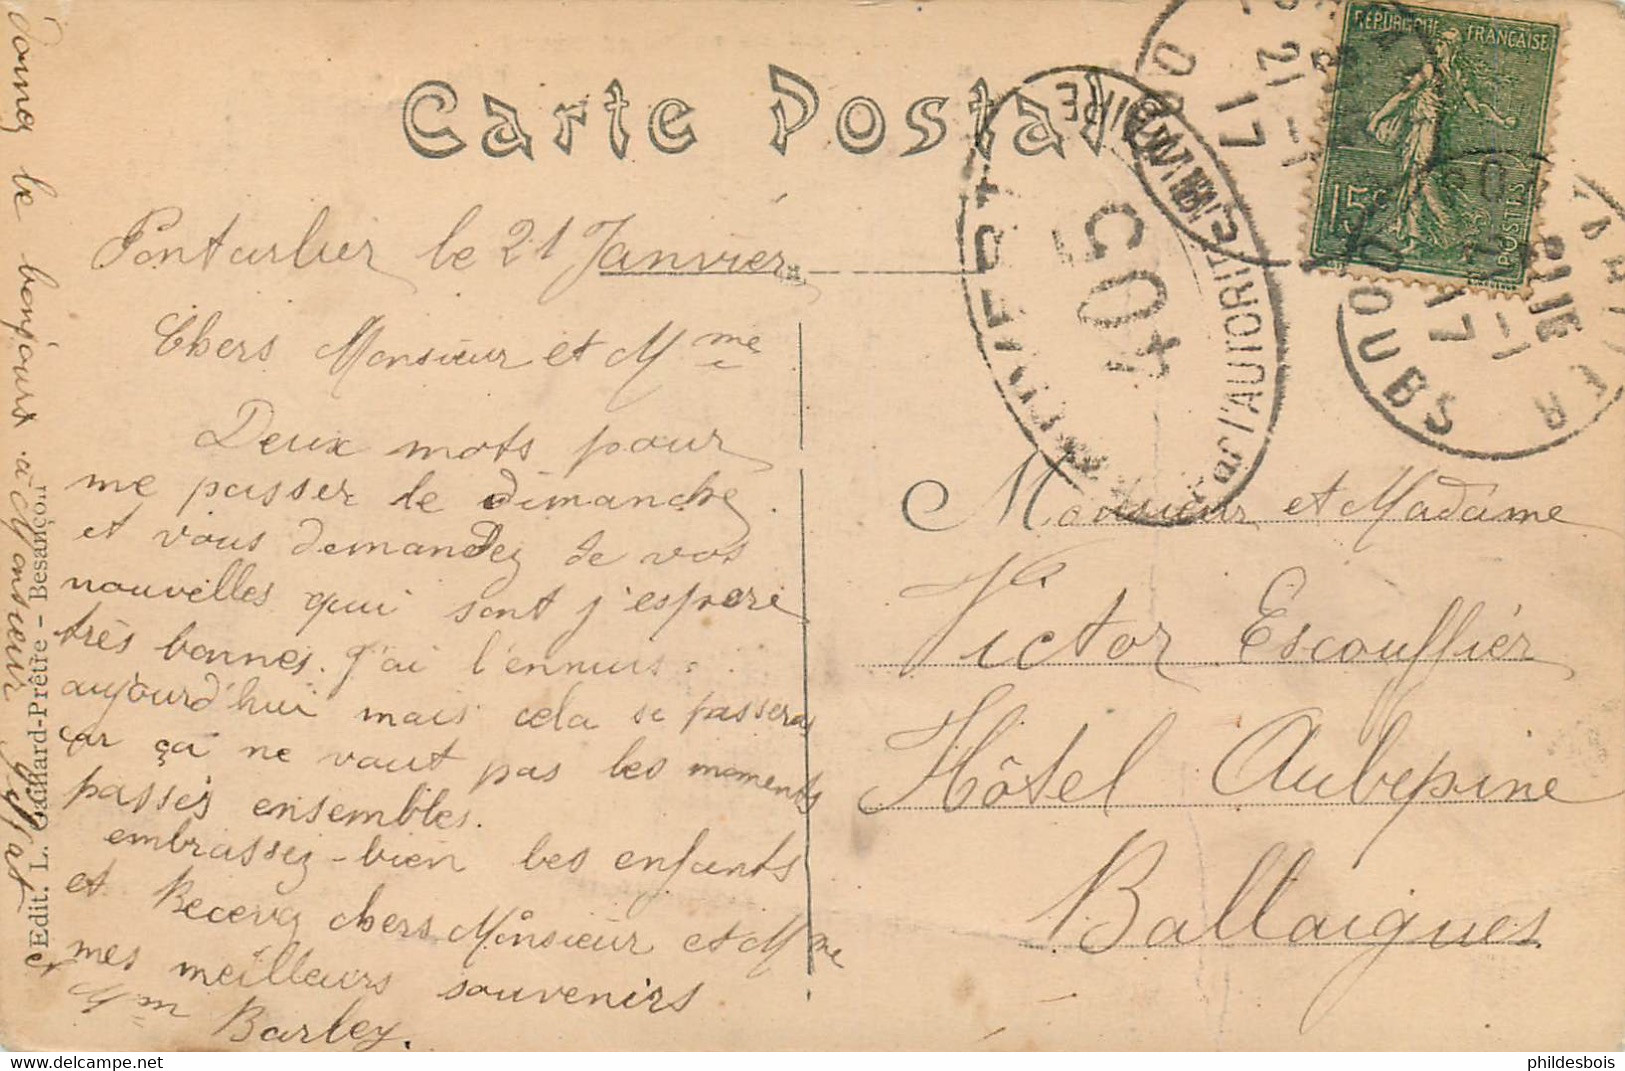 Carte Postale
RÉPUBLIQUE FRANÇAISE
15c
POSTES
21 - 1
17
DOUBS
OUVERT
par l'AUTORITÉ MILITAIRE
405
Pontarlier le 21 Janvier
Chers Monsieur et Mme
Deux mots pour
me passer le dimanche
et vous demandez de vos
nouvelles qui sont j'espere
très bonnes. J'ai l'ennuis
aujourd'hui mais cela se passera
car ça ne vaut pas les moments
passés ensembles.
embrassez-bien les enfants
et Recevez chers Monsieur et Mme
mes meilleurs souvenirs
Mm Barley.
Donnez le bonjours à Monsieur
Edit. L. Gaillard-Prêtre - Besançon
Monsieur et Madame
Victor Escouffier
Hôtel Aubepine
Ballaigues
phildesbois